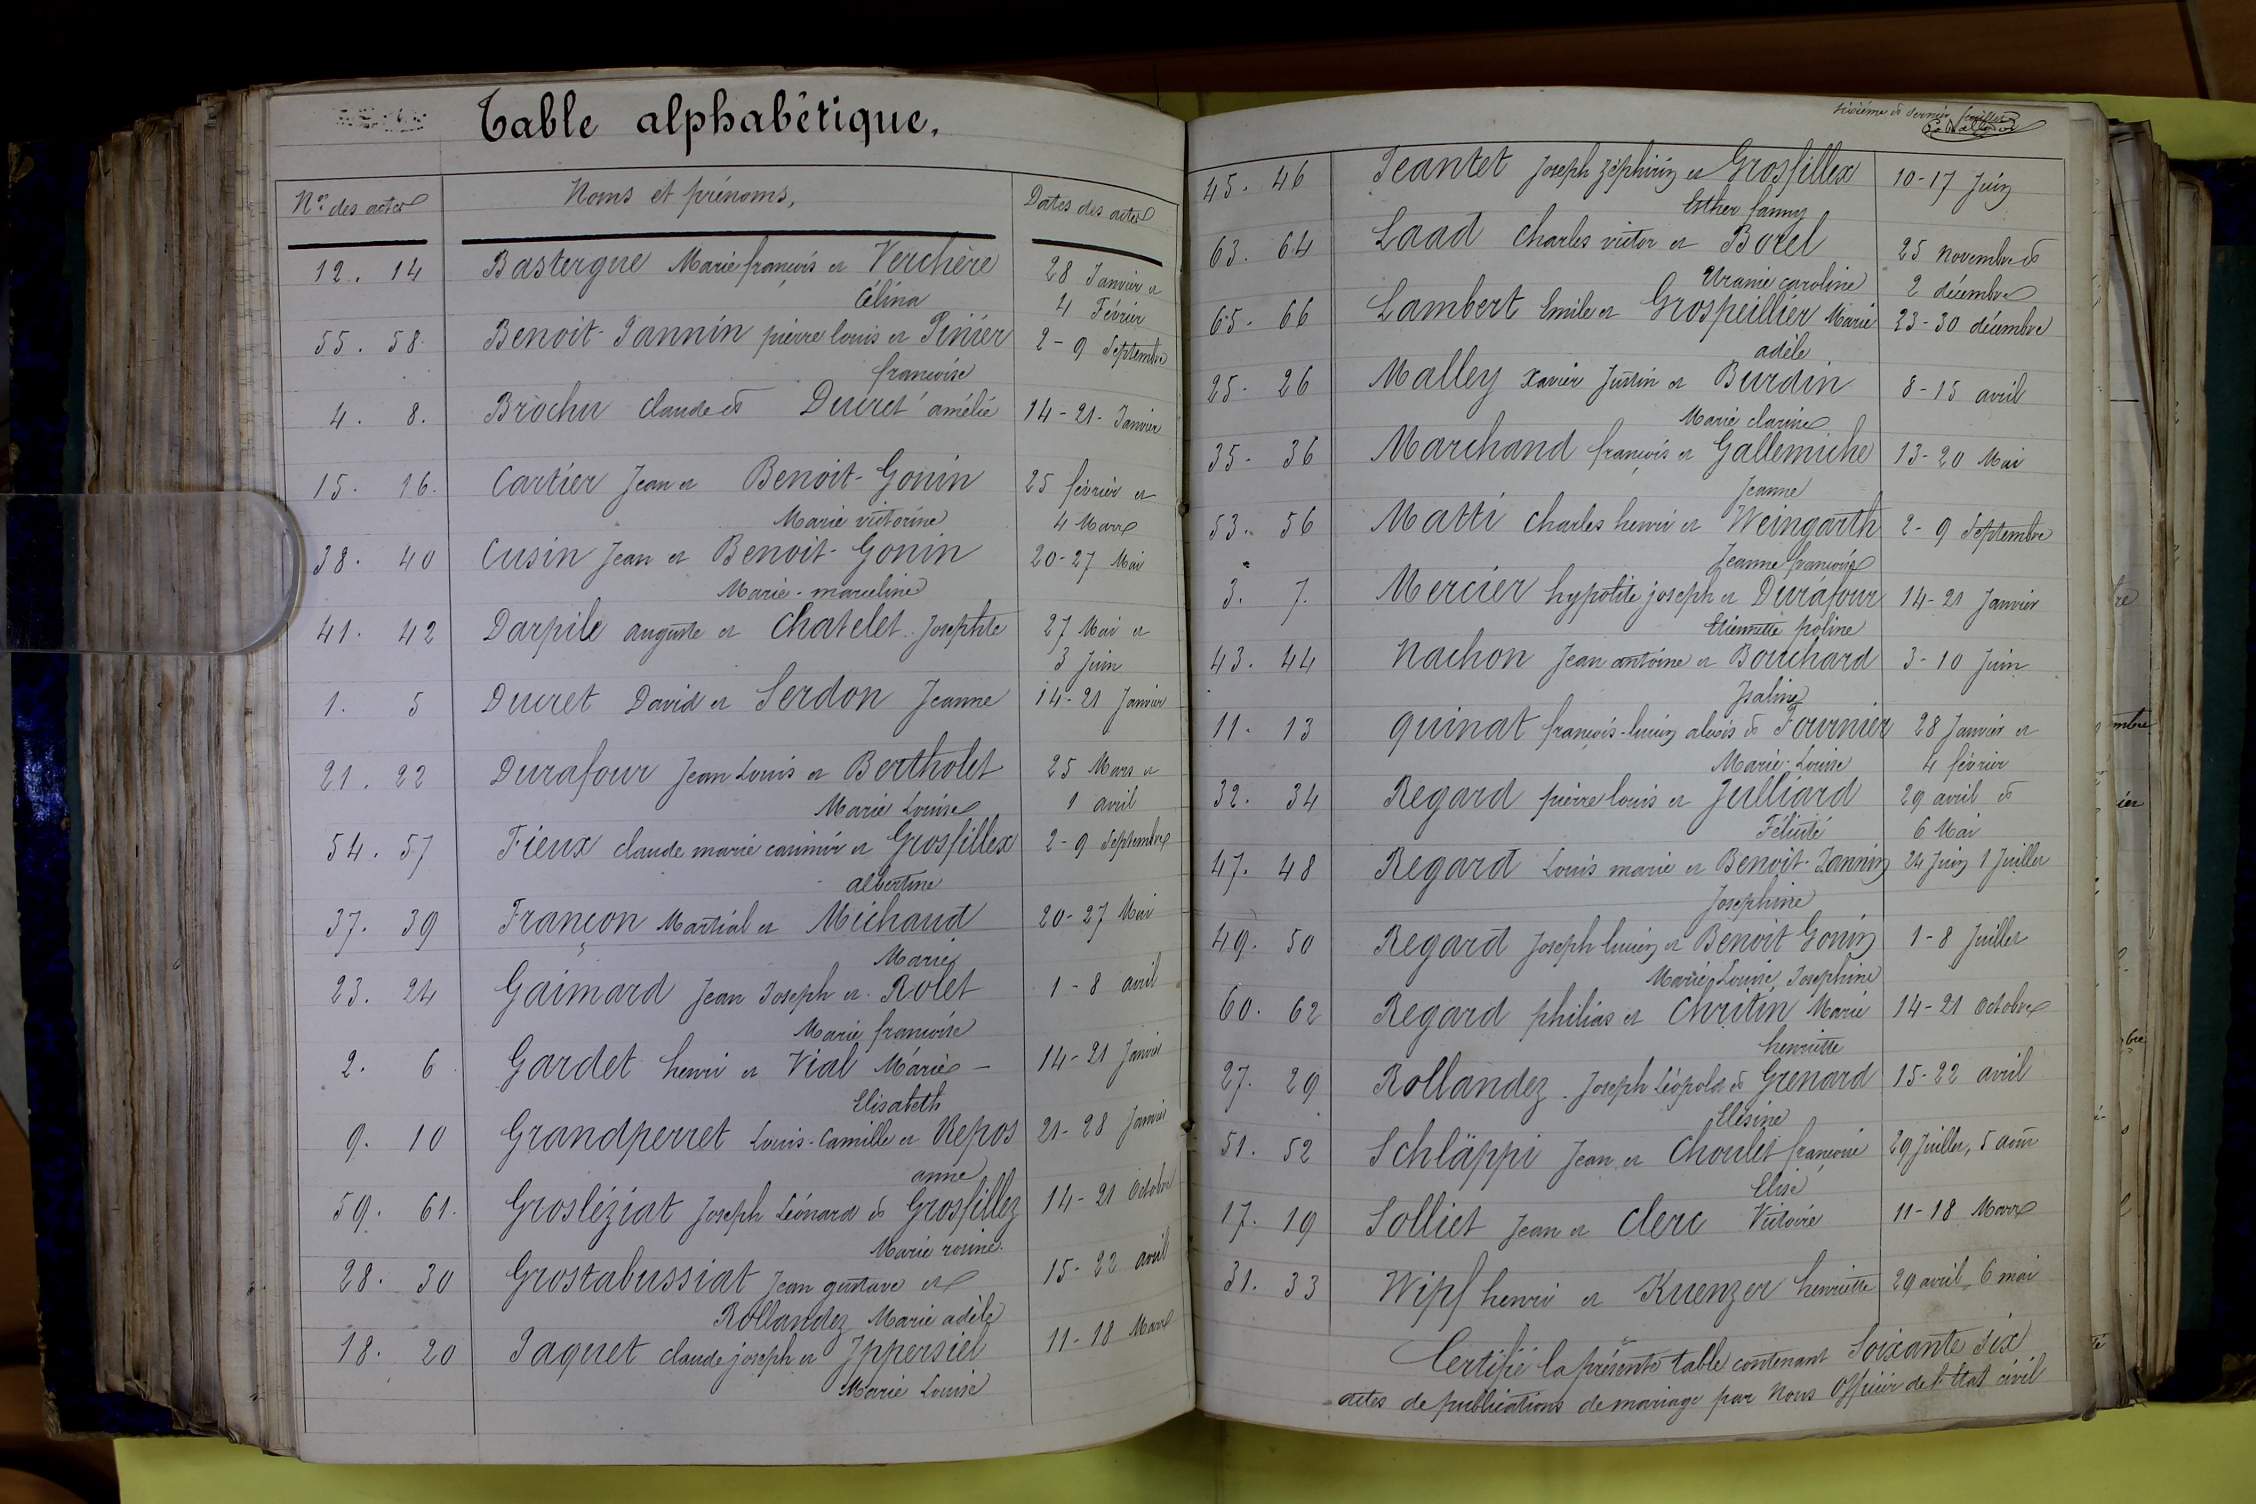 Table alphabétique.
Nos des actes Noms et prénoms, Dates des actes
12. 14 Bastergue Marie françois et Verchère 28 Janvier et
Célina 4 Février
55. 58. Benoit-Jannin pierre louis et Pinier 2-9 Septembre
françoise
4. 8. Brochu claude et Ducret amélie 14-21-Janvier
15. 16. Cartier Jean et Benoit-Gonin 25 février et
Marie victorine 4 Mars
38. 40 Cusin Jean et Benoit-Gonin 20-27 Mai
Marie-marceline
41. 42 Darpile auguste et Chatelet Josephte 27 Mai et
3 Juin
1. 5 Ducret David et Serdon Jeanne 14-21 Janvier
21. 22 Durafour Jean Louis et Bertholet 25 Mars et
Marie Louise 1 avril
54. 57 Fieux claude marie casimir et Grosfillex 2-9 Septembre
albertine
37. 39 Françon Martial et Michaud 20-27 Mai
Marie
23. 24 Gaimard Jean Joseph et Rolet 1-8 avril
Marie françoise
2. 6 Gardet henri et Vial Marie - 14-21 Janvier
Elisabeth
9. 10 Grandperret Louis-Camille et Repos 21-28 Janvier
anne
59. 61. Grosléziat Joseph Léonard et Grosfillez 14-21 Octobre
Marie rosine.
28. 30 Grostabussiat Jean gustave et 15-22 avril
Rollandez Marie adèle
18. 20 Jaquet claude joseph et Jppersiel 11-18 Mars
Marie Louise
sixième et dernier feuillet
45. 46 Jeantet Joseph Zéphirin et Grosfillex 10-17 Juin
Esther fanny
63. 64 Laad Charles victor et Borel 25 novembre et
Uranie caroline 2 décembre
65. 66 Lambert Emile et Grospeillier Marie 23-30 décembre
adèle
25. 26 Malley Xavier Justin et Burdin 8-15 avril
Marie clarine
35. 36 Marchand françois et Gallemiche 13-20 Mai
Jeanne
53. 56 Matti Charles henri et Weingarth 2-9 Septembre
Jeanne françoise
3. 7. Mercier hypolite joseph et Durafour 14-21 Janvier
Etiennette poline
43. 44 Nachon Jean antoine et Bouchard 3-10 Juin
Jsaline
11. 13 Quinat françois-lucien aloïs et Fournier 28 Janvier et
Marie-Louise 4 février
32. 34 Regard pierre louis et Julliard 29 avril et
Félicité 6 Mai
47. 48 Regard Louis marie et Benoit-Jannin 24 Juin 1 Juillet
Josephine
49. 50 Regard Joseph lucien et Benoit Gonin 1-8 Juillet
Marie Louise Josephine
60. 62 Regard philias et Christin Marie 14-21 octobre
henriette
27. 29 Rollandez Joseph Léopold et Grenard 15-22 avril
Elésine
51. 52 Schläppi Jean et Choulet françoise 29 Juillet, 5 août
Elise
17. 19 Solliet Jean et Clerc Victoire 11-18 Mars
31. 33 Wipf henri et Kuenzer henriette 29 avril 6 mai
Certifié la présente table contenant Soixante six
actes de publications de mariage par Nous Officier de l'Etat civil